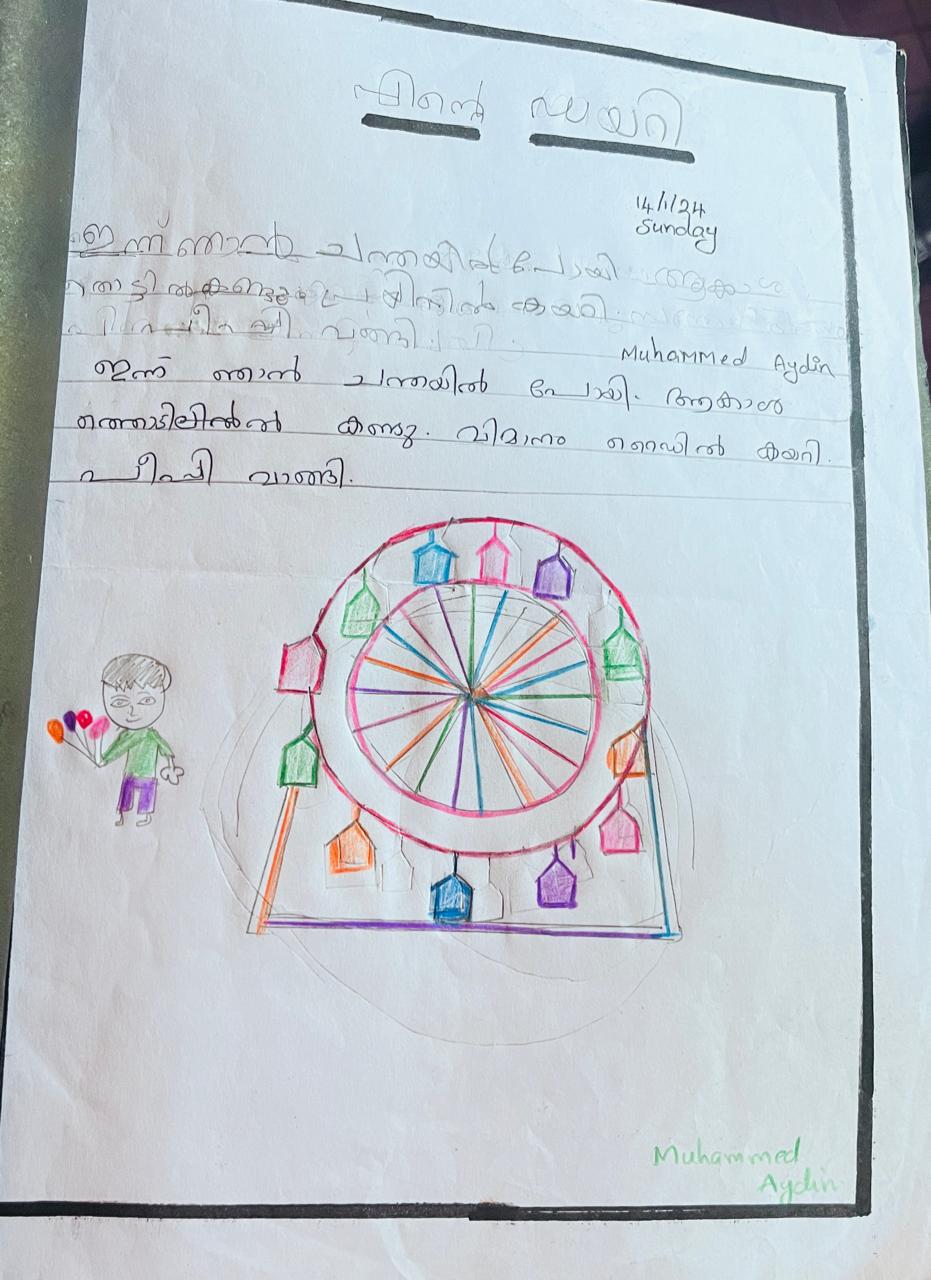 എന്റെ ഡയറി
14/1/24
Sunday
ഇന്ന് ഞാൻ ചന്തയിൽ പോയി ആകാശ
കയറി
വാങ്ങി
Muhammed Aydin
ഇന്ന് ഞാൻ ചന്തയിൽ പോയി. ആകാശ
ത്തൊട്ടിലിൽൽ കണ്ടു. വിമാനം റൈഡിൽ കയറി.
പീപ്പി വാങ്ങി.
Muhammed
Aydin